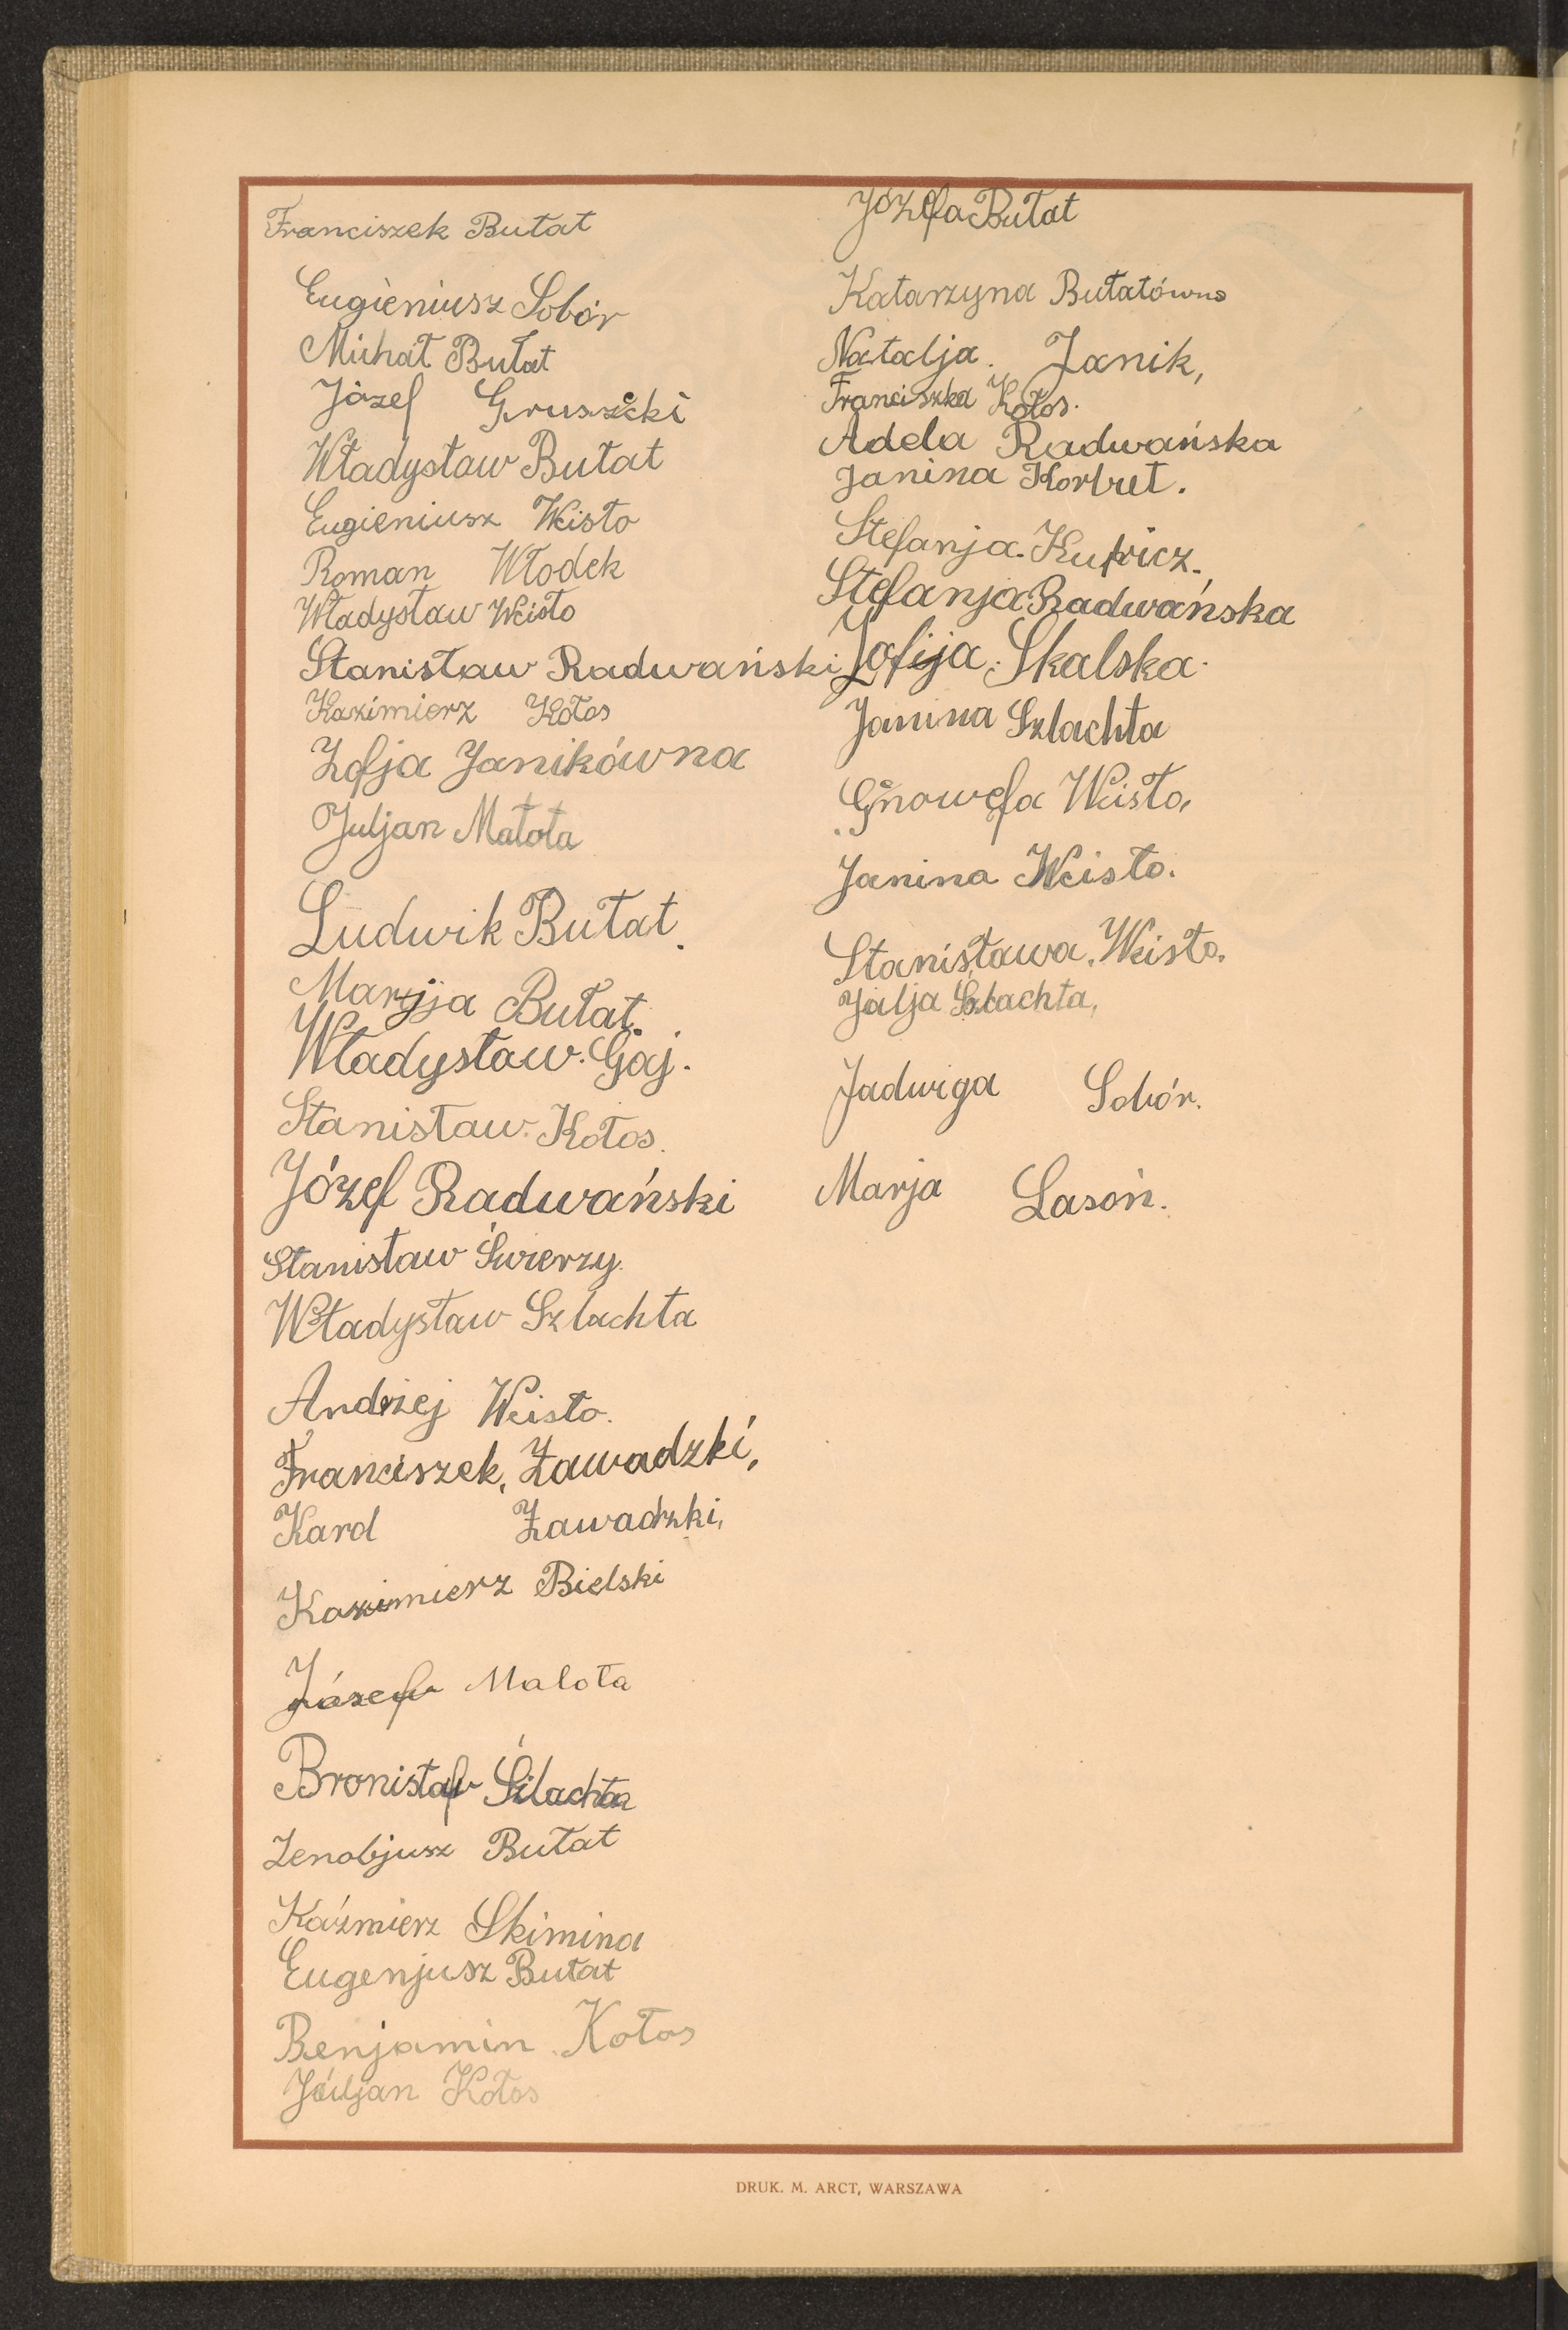 Franciszek Bułat
Eugieniusz Sobór
Michał Bułat
Józef Gruszecki
Władysław Bułat
Eugieniusz Weisło
Roman Włodek
Władysław Weisło
Stanisław Radwański
Kazimierz Kołos
Zofja Janikówna
Juljan Małota
Ludwik Bułat.
Marjja Bułat.
Władysław. Gaj.
Stanisław. Kołos.
Józef Radwański
Stanisław Świerzy.
Władysław Szlachta
Andrzej Weisło.
Franciszek, Zawadzki,
Karol Zawadzki,
Kazimierz Bielski
Józef Malota
Bronisław Szlachta
Zenobjusz Bułat
Kaźmierz Skimina
Eugenjusz Bułat
Benjamin Kołos
Juljan Kołos
Józefa Bułat
Katarzyna Bułatówna
Natalja. Janik,
Franciszka Kołos.
Adela Radwańska
Janina Korbut.
Stefanja. Kubicz.
Stefanja Radwańska
Zofija. Skalska.
Janina Szlachta
Genowefa Weisło,
Janina Weisło.
Stanisława. Weisło.
Julja Szlachta,
Jadwiga Sobór.
Marja Lasoń.
DRUK. M. ARCT, WARSZAWA